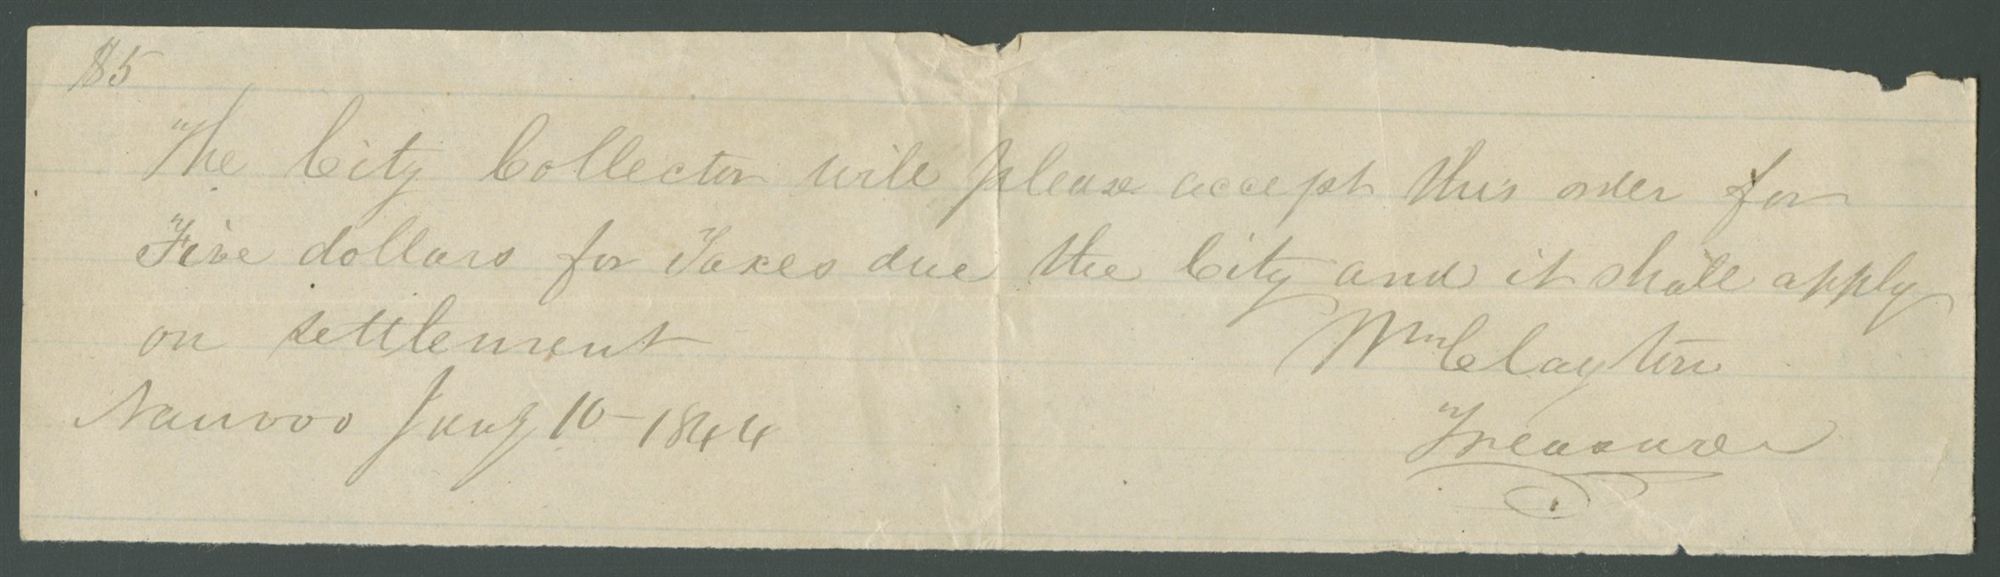 $5
The City Collector will please accept this order for
Five dollars for Taxes due the City and it shall apply
on settlement
Wm Clayton
Nauvoo Jany 10 - 1844
Treasurer